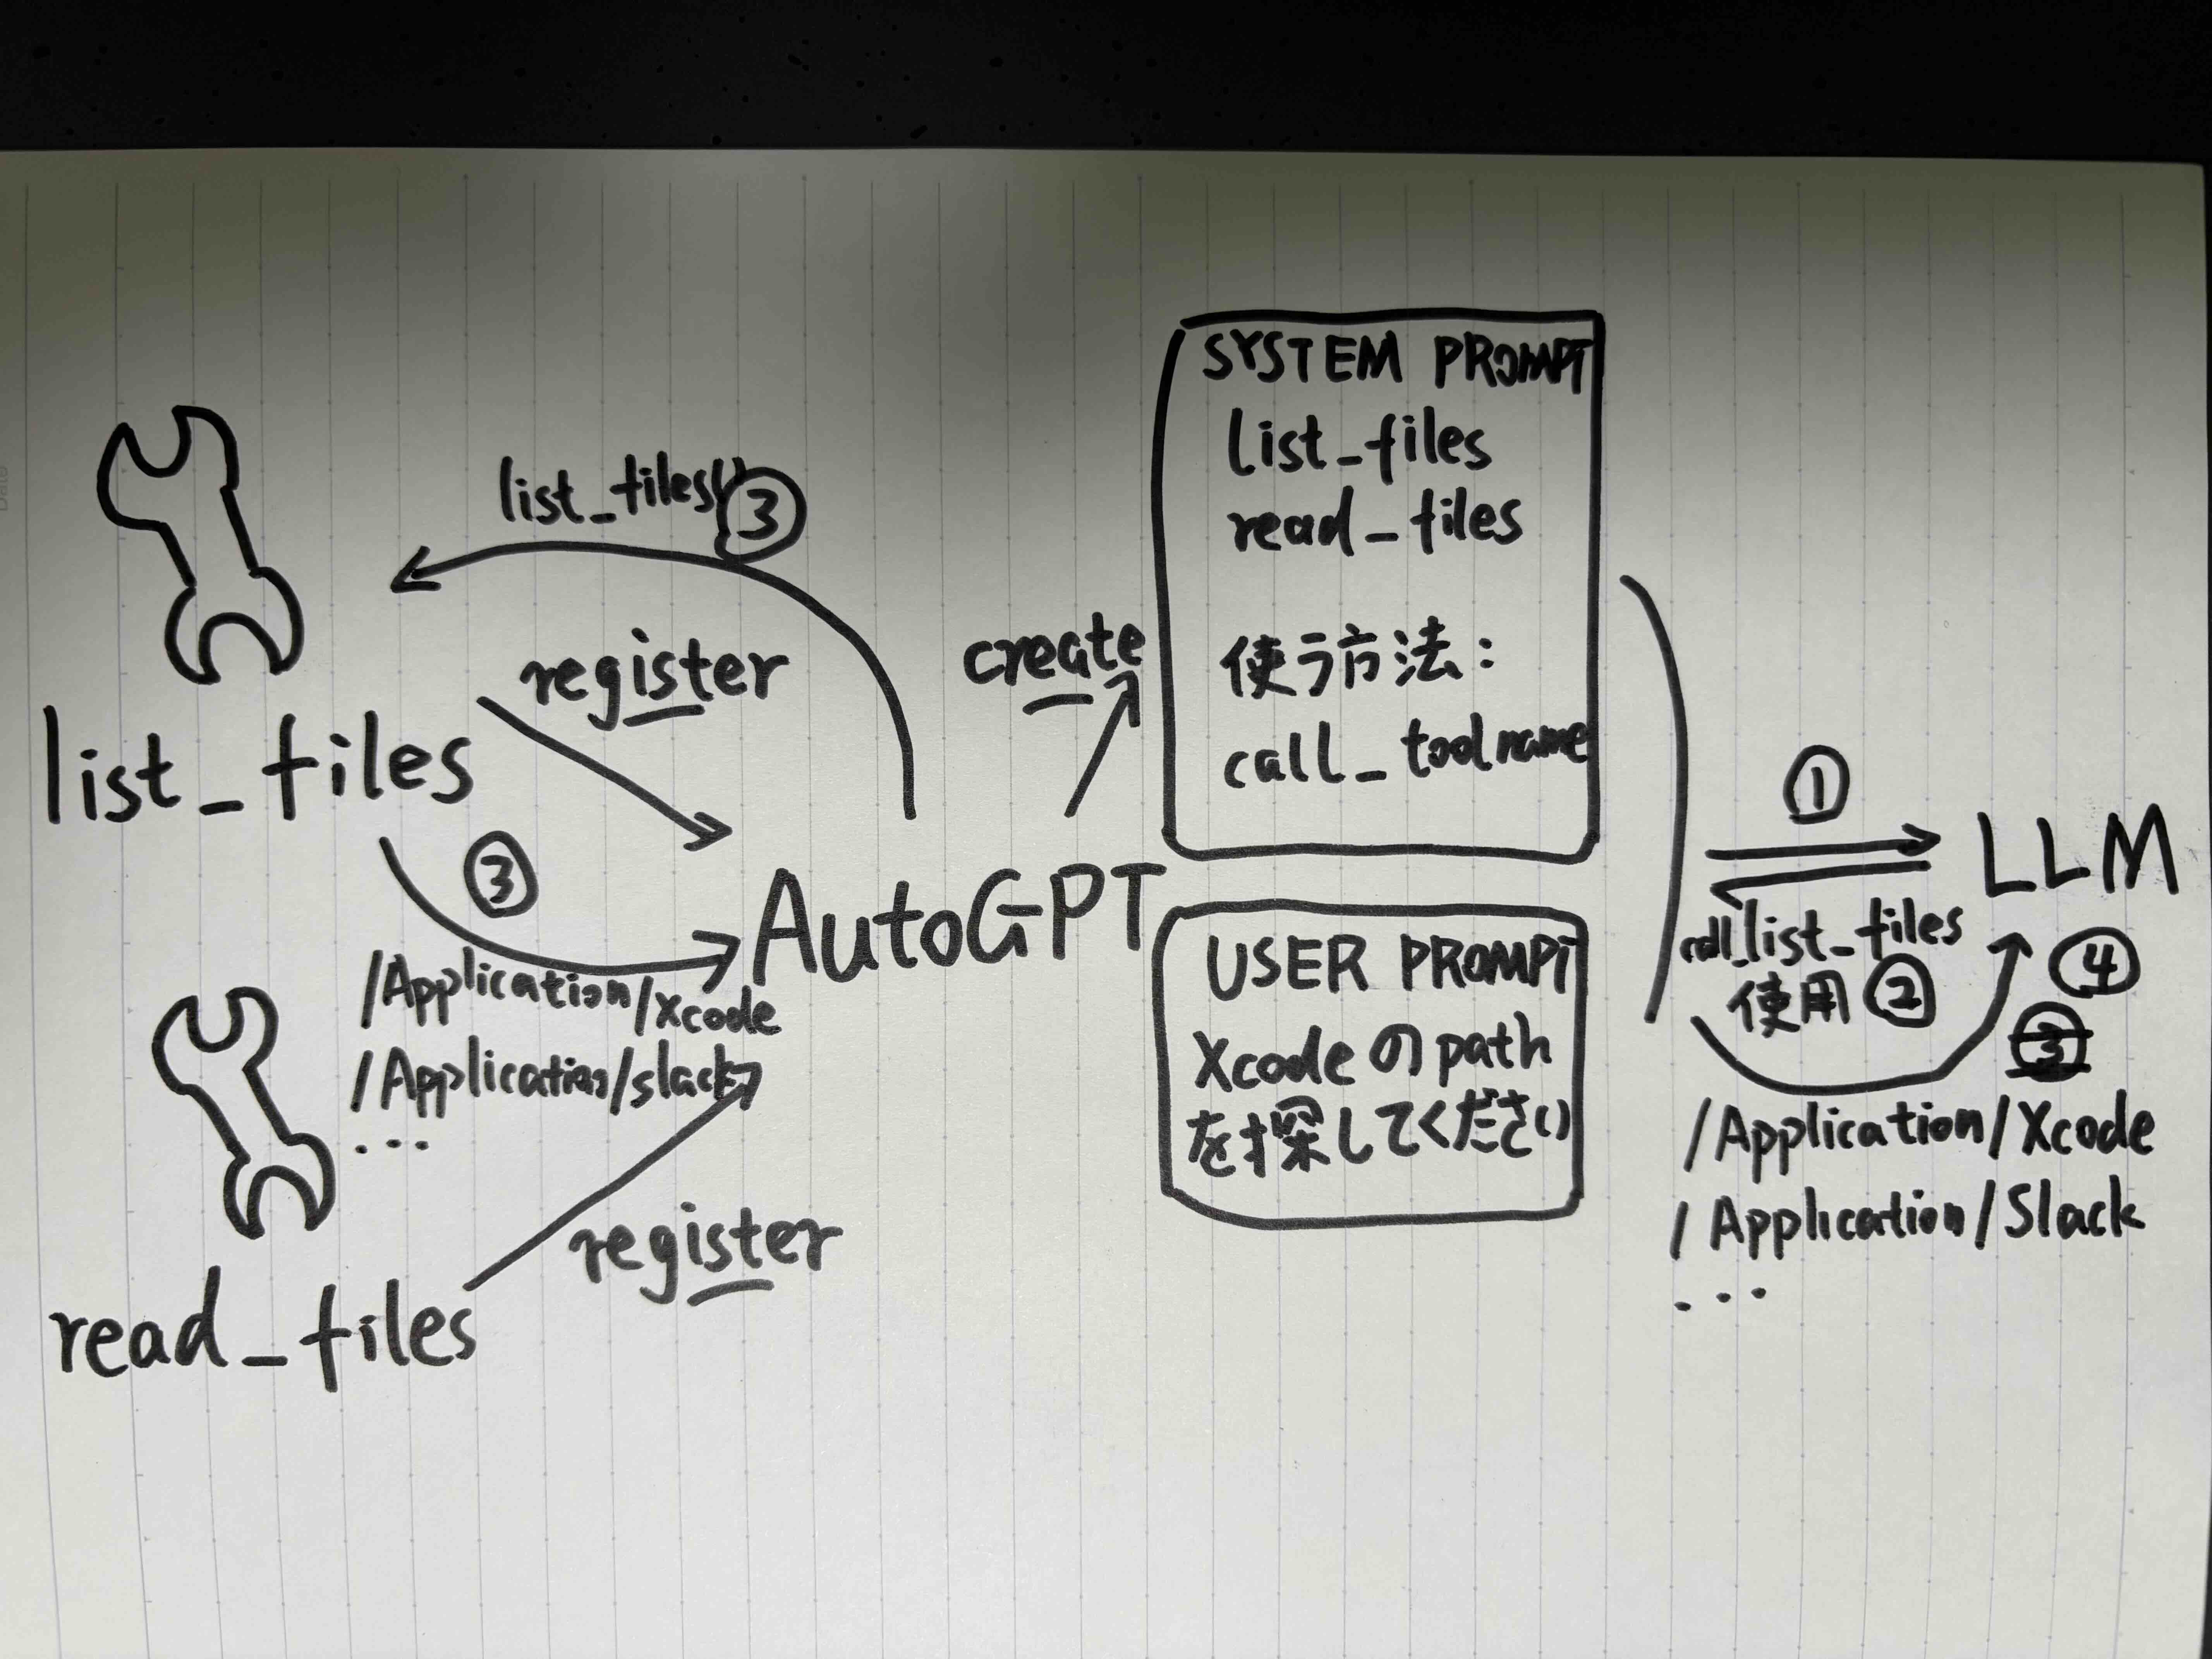 list_files()
③
register
list_files
③
/Application/Xcode
/Application/slack
...
register
read_files
AutoGPT
create
SYSTEM PROMPT
list_files
read_files
使う方法:
call_toolname
USER PROMPT
Xcodeのpath
を探してください
①
LLM
call_list_files
使用②
④
③
/Application/Xcode
/Application/Slack
...